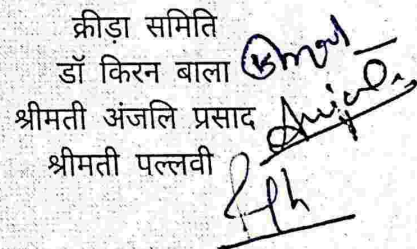 क्रीड़ा समिति
डॉ किरन बाला
श्रीमती अंजलि प्रसाद
श्रीमती पल्लवी